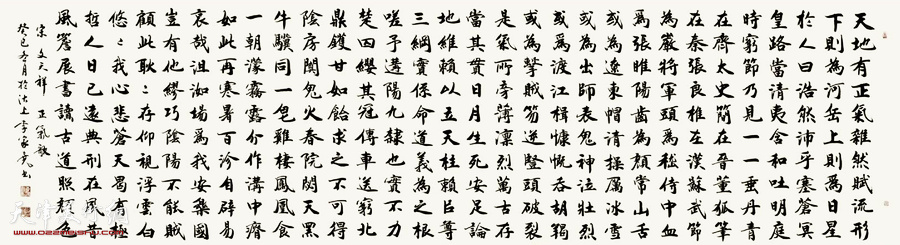 天地有正氣雜然賦流形
下則為河岳上則為日星
於人曰浩然沛乎塞蒼冥
皇路當清夷含和吐明庭
時窮節乃見一一垂丹青
在齊太史簡在晉董狐筆
在秦張良椎在漢蘇武節
為嚴將軍頭為嵇侍中血
為張睢陽齒為顏常山舌
或為遼東帽清操厲冰雪
或為出師表鬼神泣壯烈
或為渡江楫慷慨吞胡羯
或為擊賊笏逆豎頭破裂
是氣所旁薄凜烈萬古存
當其貫日月生死安足論
地維賴以立天柱賴以尊
三綱實係命道義為之根
嗟予遘陽九隸也實不力
楚囚纓其冠傳車送窮北
鼎鑊甘如飴求之不可得
陰房闃鬼火春院閟天黑
牛驥同一皂雞棲鳳凰食
一朝濛霧露分作溝中瘠
如此再寒暑百沴自辟易
哀哉沮洳場為我安樂國
豈有他繆巧陰陽不能賊
顧此耿耿存仰視浮雲白
悠悠我心悲蒼天曷有極
哲人日已遠典刑在夙昔
風簷展書讀古道照顏色
宋文天祥正氣歌
癸巳冬月於
天津美术网